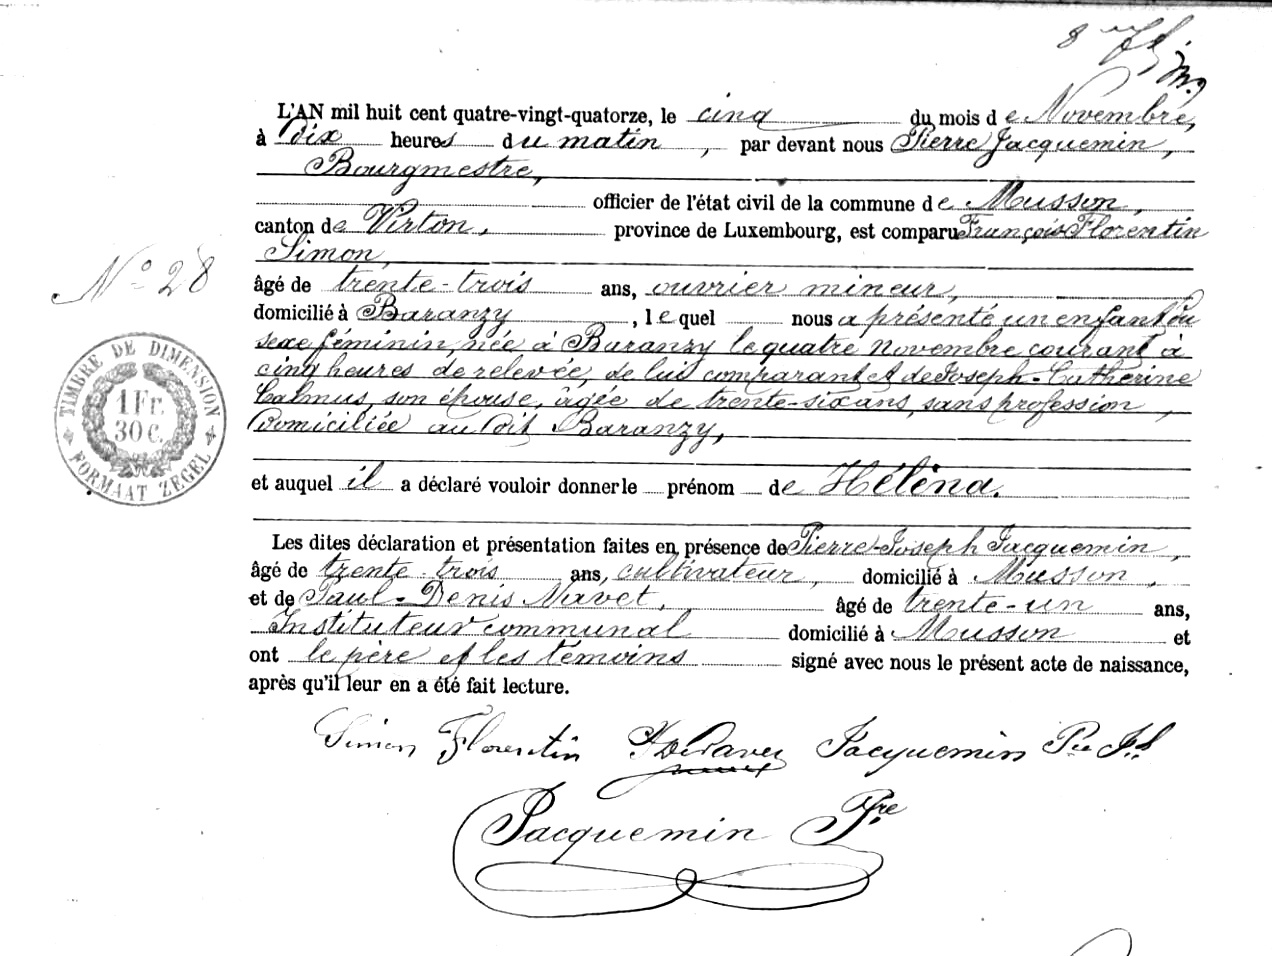 8
L'AN mil huit cent quatre-vingt-quatorze, le cinq du mois de Novembre,
à dix heures du matin, par devant nous Pierre Jacquemin,
Bourgmestre,
officier de l'état civil de la commune de Musson,
canton de Virton, province de Luxembourg, est comparu François Florentin
Simon,
N° 28
âgé de trente-trois ans, ouvrier mineur,
domicilié à Baranzy, lequel nous a présenté un enfant du
sexe féminin, née à Baranzy le quatre novembre courant à
cinq heures de relevée, de lui comparant et de Joseph-Catherine
Calmus, son épouse, âgée de trente-six ans, sans profession,
domiciliée au dit Baranzy,
TIMBRE DE DIMENSION
1 Fr.
30 C.
FORMAAT ZEGEL
et auquel il a déclaré vouloir donner le prénom de Héléna.
Les dites déclaration et présentation faites en présence de Pierre-Joseph Jacquemin,
âgé de trente-trois ans, cultivateur, domicilié à Musson,
et de Paul-Denis Navet, âgé de trente-un ans,
Instituteur communal domicilié à Musson et
ont le père et les témoins signé avec nous le présent acte de naissance,
après qu'il leur en a été fait lecture.
Simon Florentin Jacquemin Pre Jh
Jacquemin Pre